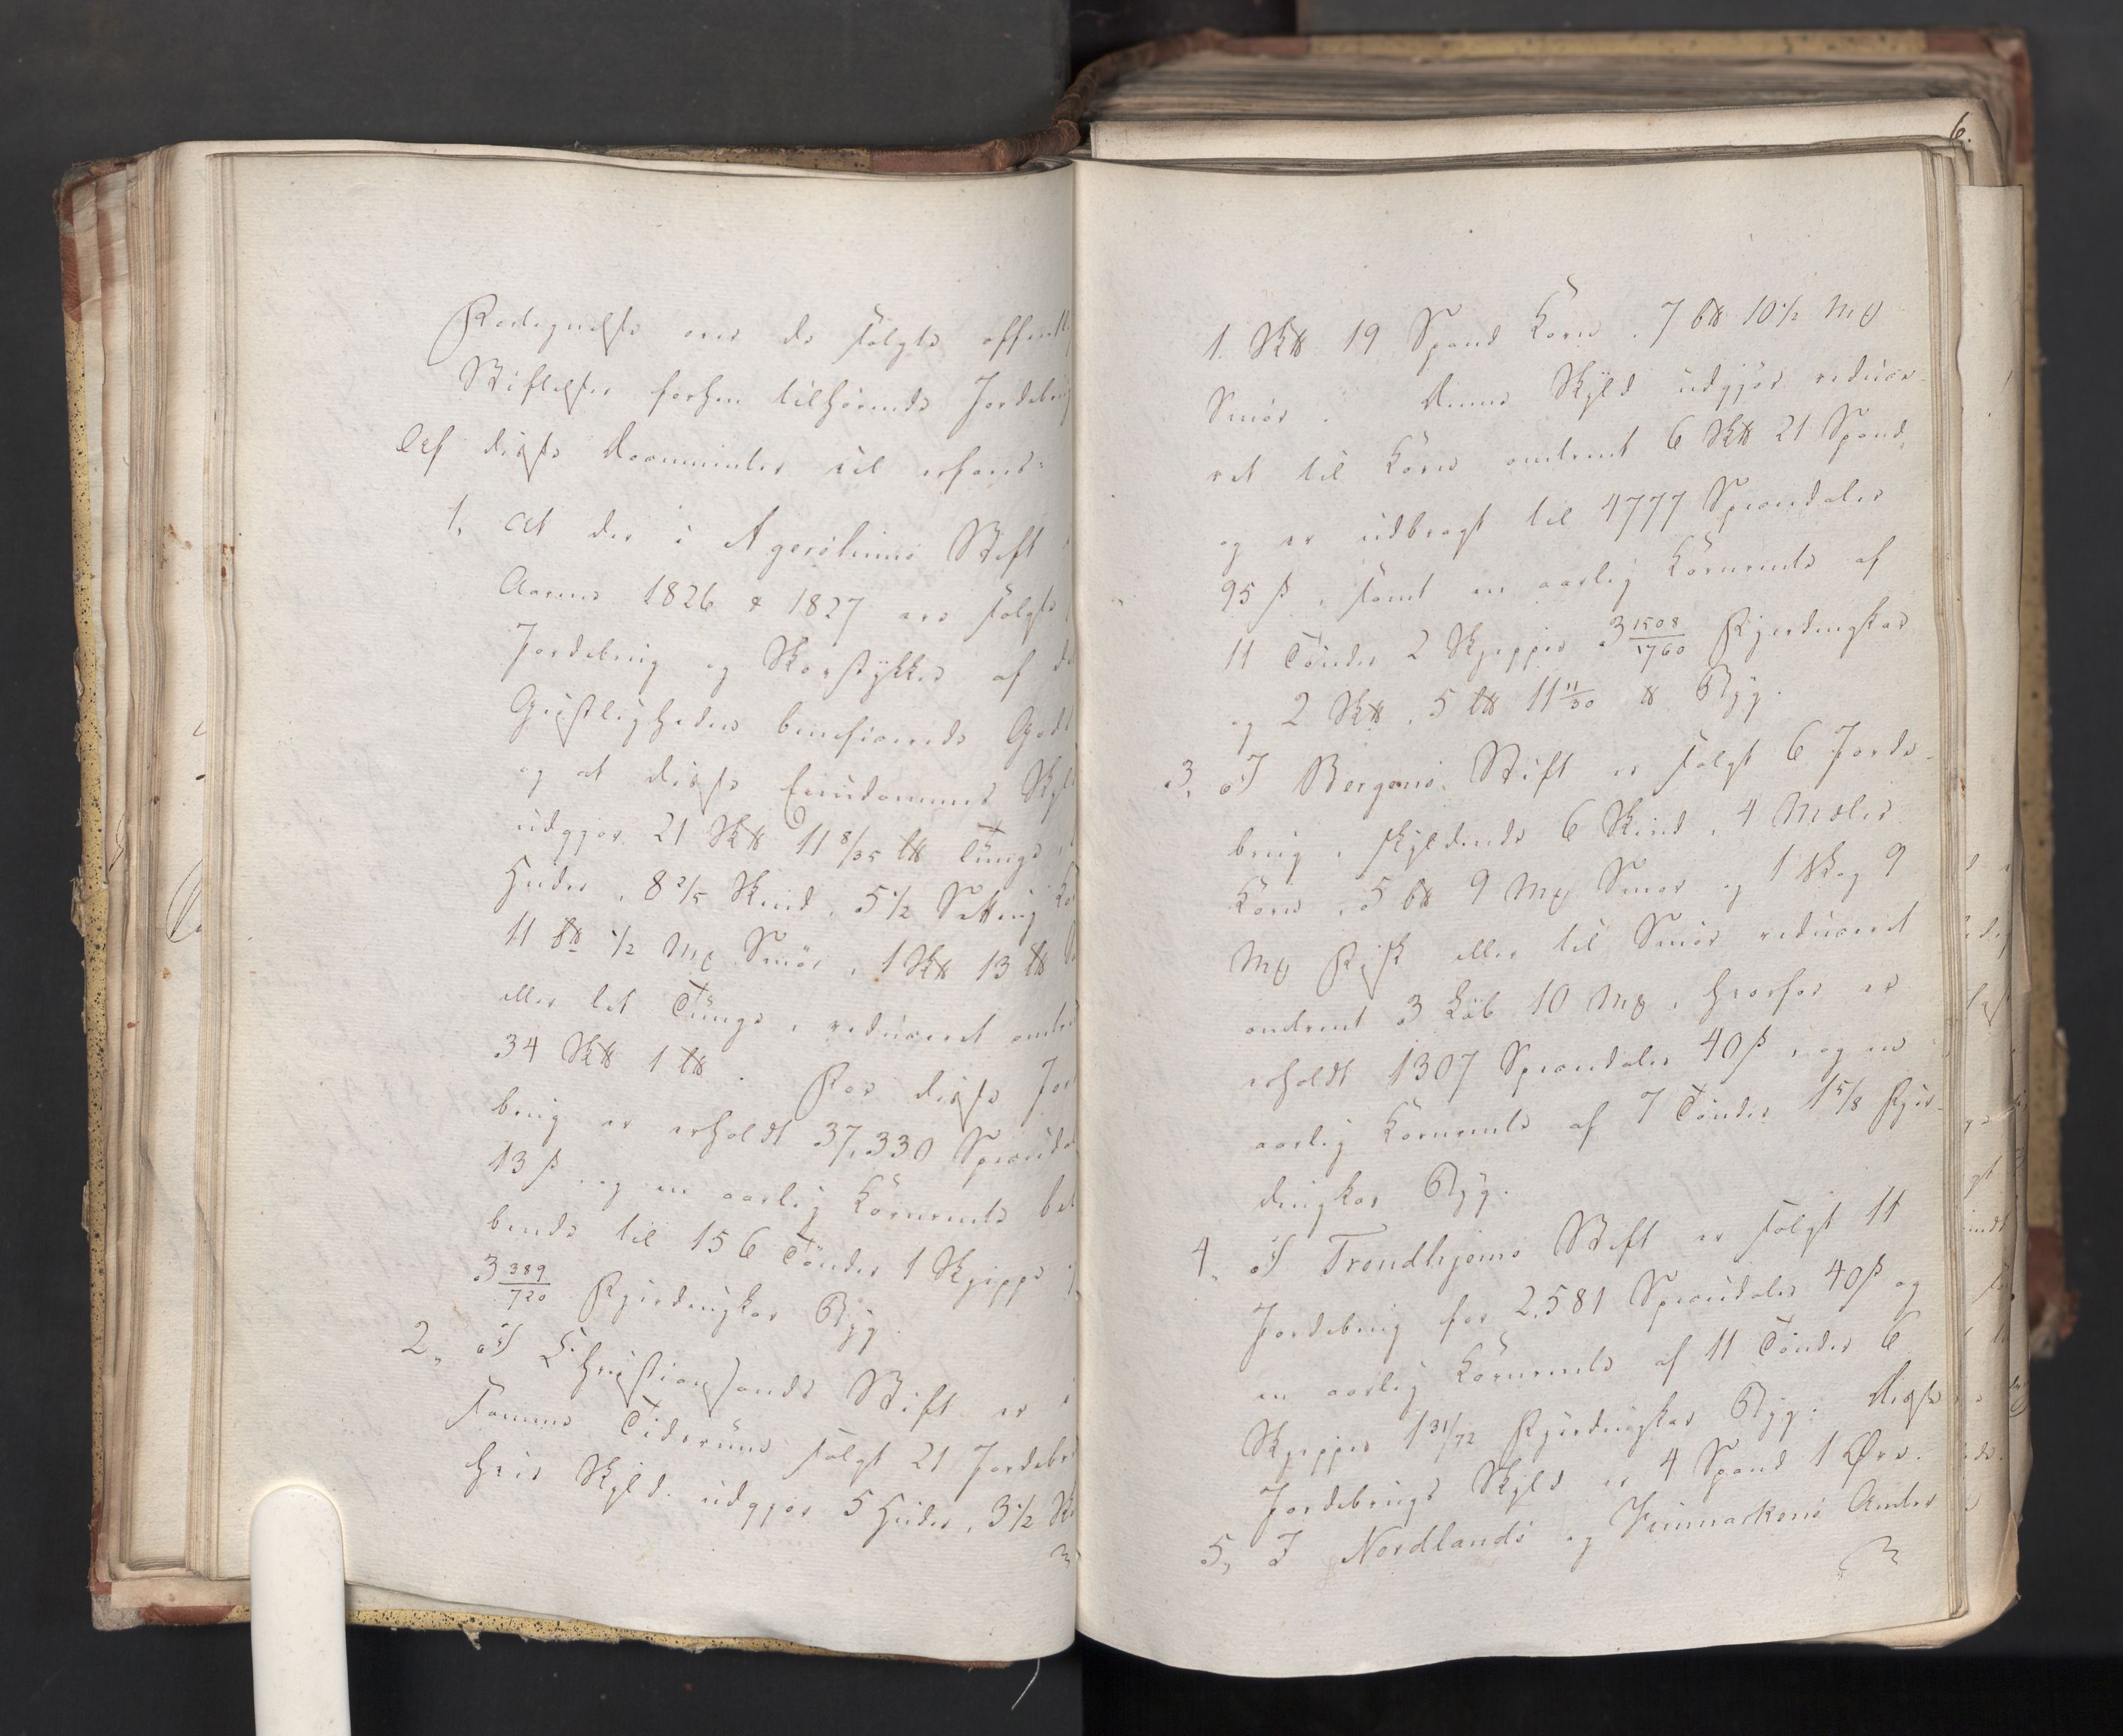 Fortegnelse over de solgte offentl
Stiftelser forhen tilhørende Jordebrug
Af disse Documenter vil erfares:
1, at der i Agershuus Stift
Aarene 1826 & 1827 ere solgte
Jordebrug og Skovstykker af de
Geistligheden beneficerede Gods
og at disse Eiendommes Skyld
udgjør 21 Sk℔ 11 8/35 L℔ Tunge
Huder, 8 2/5 Skind, 5 1/2 Setting Ko
11 L℔ 1/2 Mk Smör, 1 Sk℔ 13 L℔
eller let Tunge, reduceret omtre
34 Sk℔ 1 L℔. For disse Jor
brug er erholdt 37,330 Speciedal
13 ß og en aarlig Kornrente bel
bende til 156 Tönder 1 Skjeppe
3 389/720 Fjerdingkar Byg.
2, I Christiansands Stift er i
samme Tidsrum solgt 21 Jordebru
hvis Skyld udgjør 5 Huder, 3 1/2 Sk
6.
1 Sk℔ 19 Spand Korn, 7 b℔ 10 1/2 Mk
Smör. Denne Skyld udgjør reduce-
ret til Korn omtrent 6 Sk℔ 21 Spand,
og er udbragt til 4777 Speciedaler
95 ß, samt en aarlig Kornrente af
11 Tönder 2 Skjepper 3 1508/1760 Fjerdingkar
og 2 Sk℔, 5 L℔ 11 11/30 ℔ Byg.
3, I Bergens Stift er solgt 6 Jorde-
brug, skyldende 6 Skind, 4 Mæler
Korn, 5 b℔ 9 Mk Smør og 1 Vog 9
Mk Fisk eller til Smør reduceret
omtrent 3 Løb 10 Mk, hvorfor er
erholdt 1307 Speciedaler 40 ß, og en
aarlig Kornrente af 7 Tönder 1 5/8 Fjer-
dingkar Byg.
4, I Trondhjems Stift er solgt 11
Jordebrug for 2,581 Speciedaler 40 ß og
en aarlig Kornrente af 11 Tönder 6
Skjepper 1 31/72 Fjerdingkar Byg. Disse
Jordebrugs Skyld er 4 Spand 1 Øre.
5, I Nordlands og Finmarkens Amter